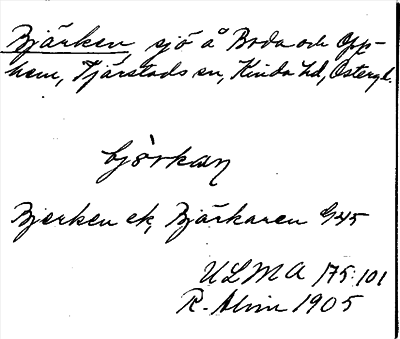 Bjärken, sjö å Boda och Opp-
hem, Tjärstads sn, Kinda hd, Östergl.
bjö̀rkan
Bjerken ek, Bjärkaren G45
ULMA 175:101
R. Alvin 1905